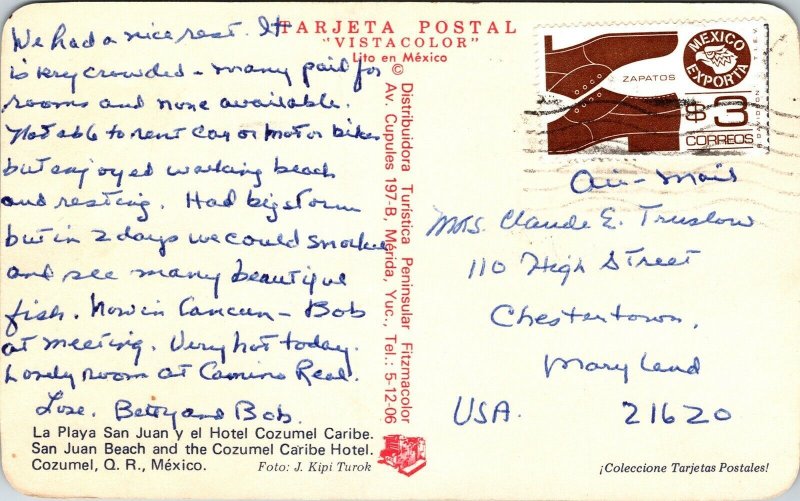 TARJETA POSTAL
"VISTACOLOR"
Lito en México
We had a nice rest. It
is very crowded - many paid for
rooms and none available.
Not able to rent car or motor bikes
but enjoyed walking beach
and resting. Had big storm
but in 2 days we could snorkel
and see many beautiful
fish. Now in Cancun - Bob
at meeting. Very hot today.
Lovely room at Camino Real.
Love, Betty and Bob.
La Playa San Juan y el Hotel Cozumel Caribe.
San Juan Beach and the Cozumel Caribe Hotel.
Cozumel, Q. R., México.
Foto: J. Kipi Turok
© Distribuidora Turística Peninsular Fitzmacolor
Av. Cupules 197-B, Mérida, Yuc., Tel.: 5-12-06
ZAPATOS
MEXICO
EXPORTA
$3
CORREOS
Air-Mail
Mrs. Claude E. Truslow
110 High Street
Chestertown,
Maryland
USA. 21620
¡Coleccione Tarjetas Postales!